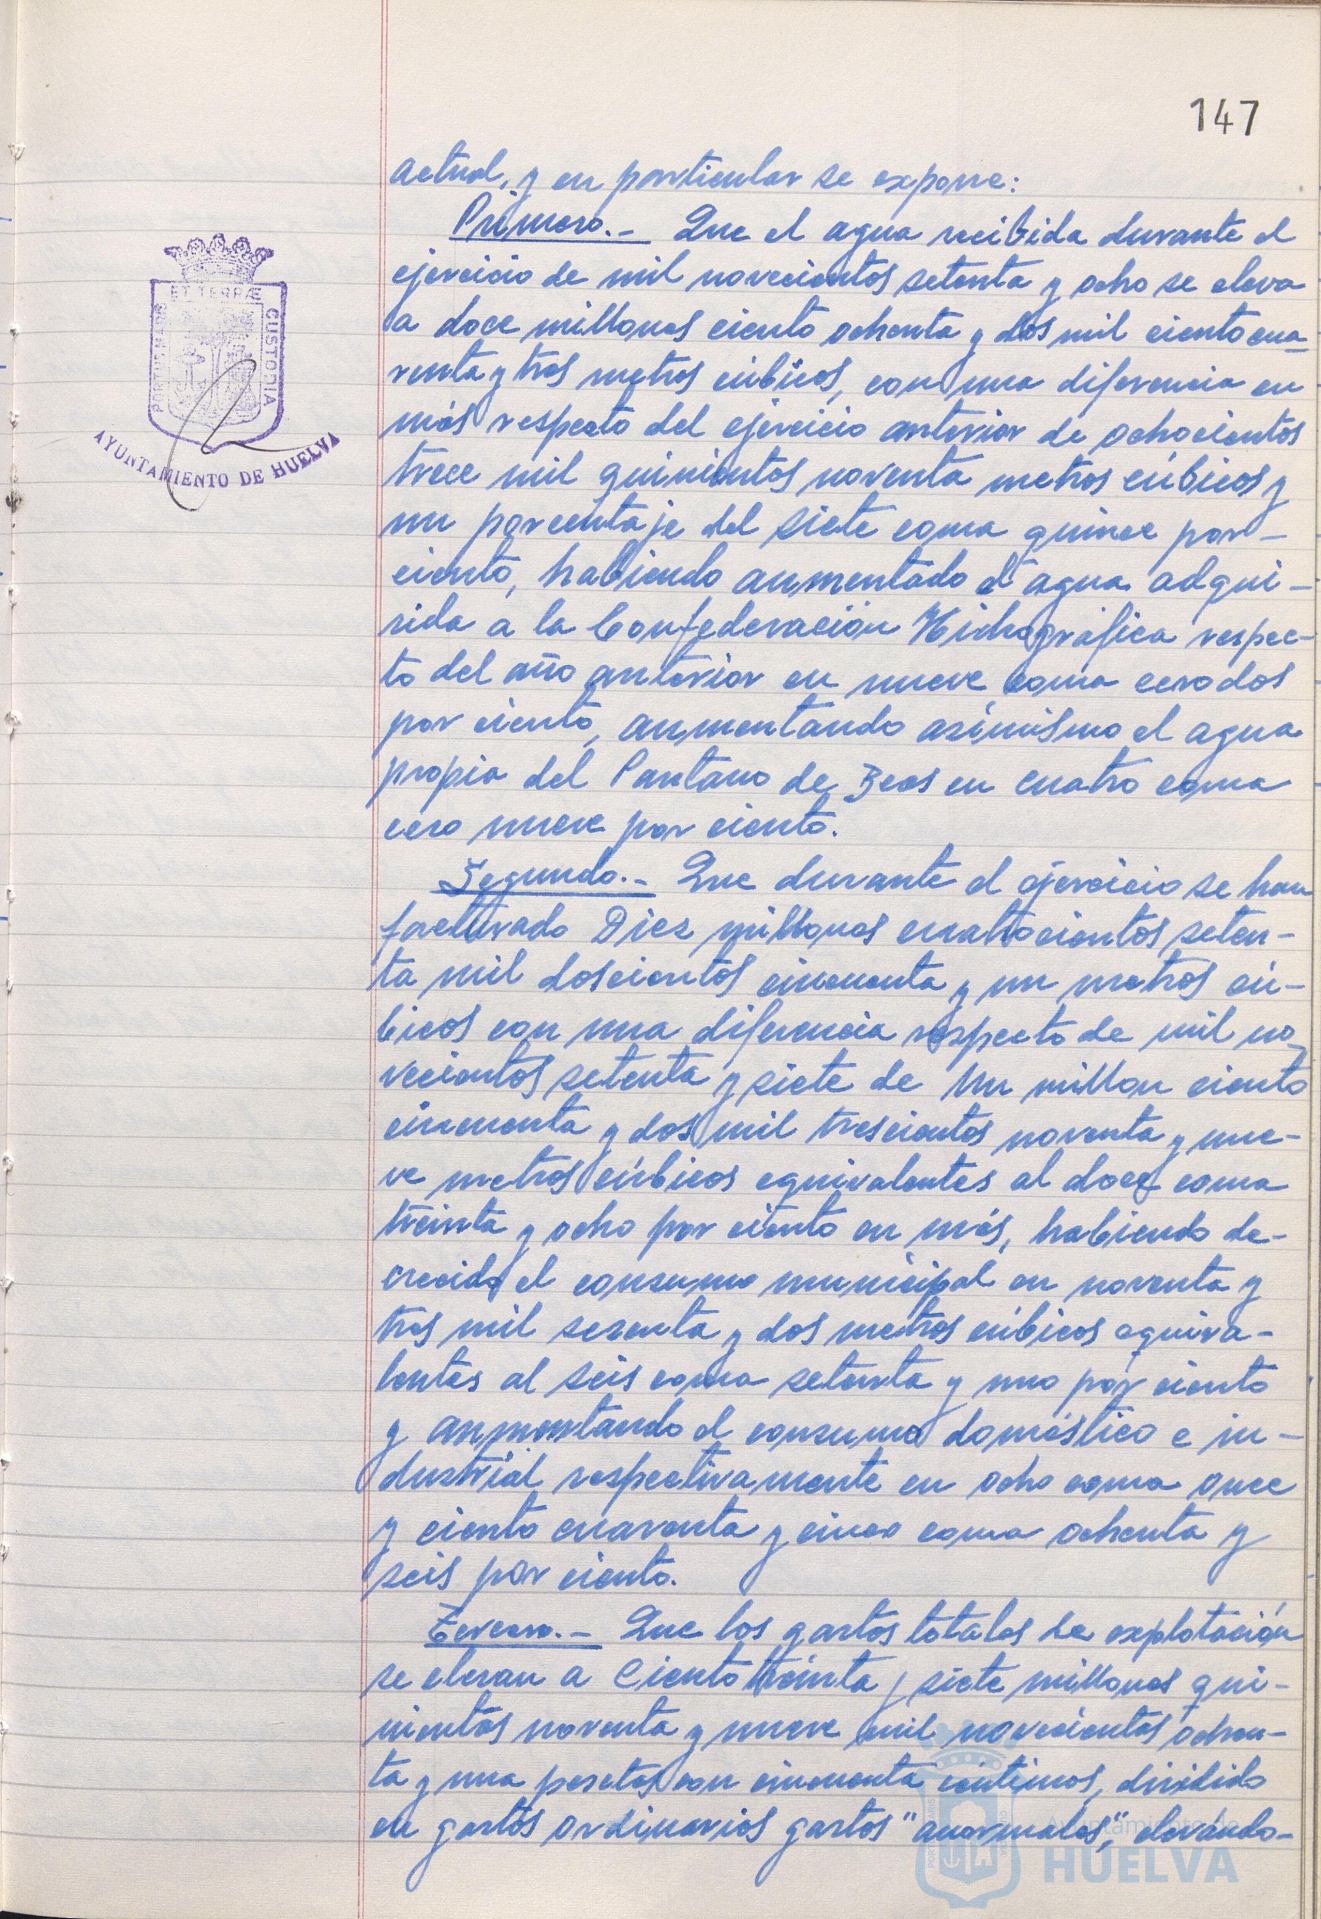 147
actual, y en particular se expone:
Primero.- Que el agua recibida durante el
ejercicio de mil novecientos setenta y ocho se eleva
a doce millones ciento ochenta y dos mil ciento cua-
renta y tres metros cúbicos, con una diferencia en
más respecto del ejercicio anterior de ochocientos
trece mil quinientos noventa metros cúbicos y
un porcentaje del siete coma quince por-
ciento, habiendo aumentado el agua adqui-
rida a la Confederación Hidrográfica respec-
to del año anterior en nueve coma cero dos
por ciento, aumentando asímismo el agua
propia del Pantano de Beas en cuatro coma
cero nueve por ciento.
Segundo.- Que durante el ejercicio se han
facturado Diez millones cuatrocientos seten-
ta mil doscientos cincuenta y un metros cú-
bicos con una diferencia respecto de mil no-
vecientos setenta y siete de Un millon ciento
cincuenta y dos mil trescientos noventa y nue-
ve metros cúbicos equivalentes al doce coma
treinta y ocho por ciento en más, habiendo de-
crecido el consumo municipal en noventa y
tres mil sesenta y dos metros cúbicos equiva-
lentes al seis coma setenta y uno por ciento
y aumentando el consumo doméstico e in-
dustrial respectivamente en ocho coma once
y ciento cuarenta y cinco coma ochenta y
seis por ciento.
Tercero.- Que los gastos totales de explotación
se elevan a Ciento treinta y siete millones qui-
nientos noventa y nueve mil novecientos ochen-
ta y una pesetas con cincuenta céntimos, dividido
en gastos ordinarios gastos "anormales", elevándo-
PORTUS MARIS ET TERRÆ CUSTODIA
AYUNTAMIENTO DE HUELVA
Ayuntamiento de
HUELVA